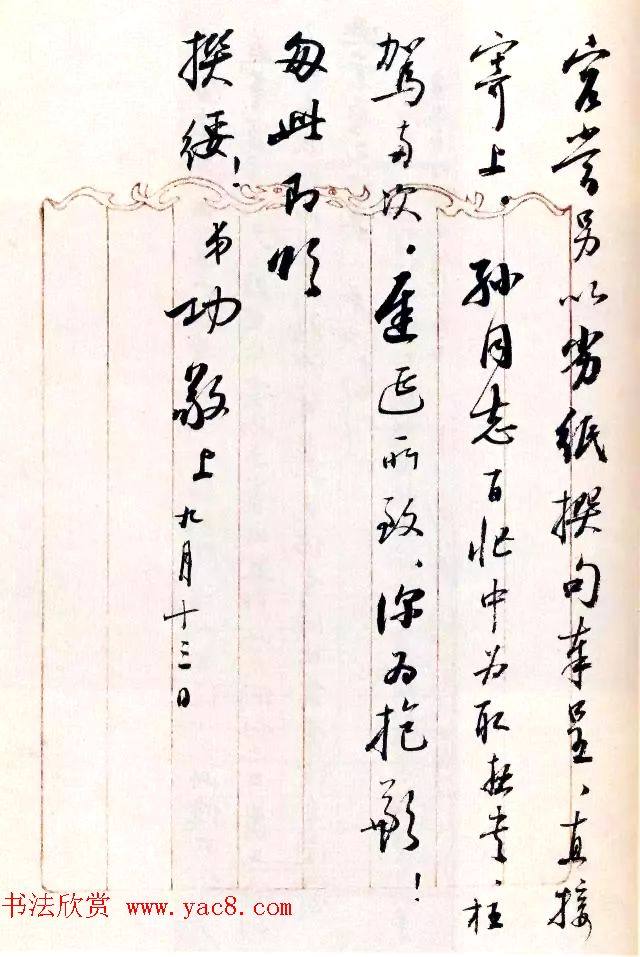 容当另以劣纸撰句奉呈、直接
寄上。孙同志百忙中为取拙书、枉
驾两次。迟延所致、深为抱歉！
匆此即颂
撰绥！
弟功敬上九月十三日
书法欣赏 www.yac8.com